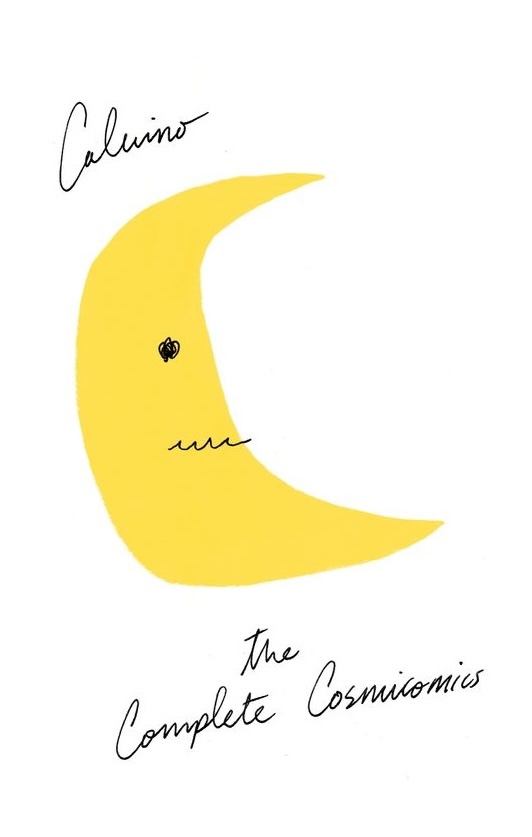 Calvino
the
Complete Cosmicomics